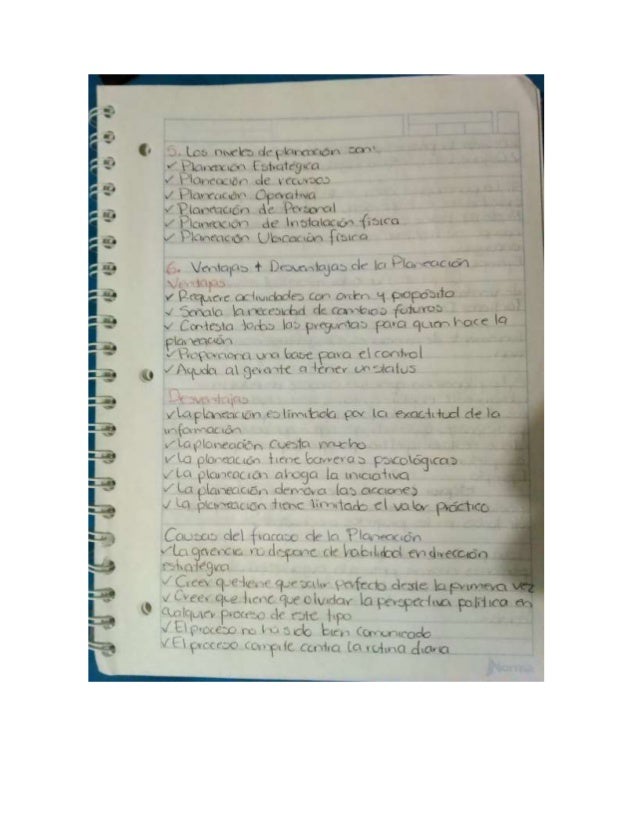 5. Los niveles de planeación son:
✓ Planeación Estratégica
✓ Planeación de recursos
✓ Planeación Operativa
✓ Planeación de Personal
✓ Planeación de Instalación física
✓ Planeación Ubicación física
6. Ventajas + Desventajas de la Planeación
Ventajas
✓ Requiere actividades con orden y propósito
✓ Señala la necesidad de cambios futuros
✓ Contesta todas las preguntas para quien hace la
planeación
✓ Proporciona una base para el control
✓ Ayuda al gerente a tener un status
Desventajas
✓ La planeación es limitada por la exactitud de la
información
✓ La planeación cuesta mucho
✓ La planeación tiene barreras psicológicas
✓ La planeación ahoga la iniciativa
✓ La planeación demora las acciones
✓ La planeación tiene limitado el valor práctico
Causas del fracaso de la Planeación
✓ La gerencia no dispone de habilidad en dirección
estrategia
✓ Creer que tiene que salir perfecto desde la primera vez
✓ Creer que tiene que olvidar la perspectiva política en
cualquier proceso de este tipo
✓ El proceso no ha sido bien comunicado
✓ El proceso compite contra la rutina diaria
Norma